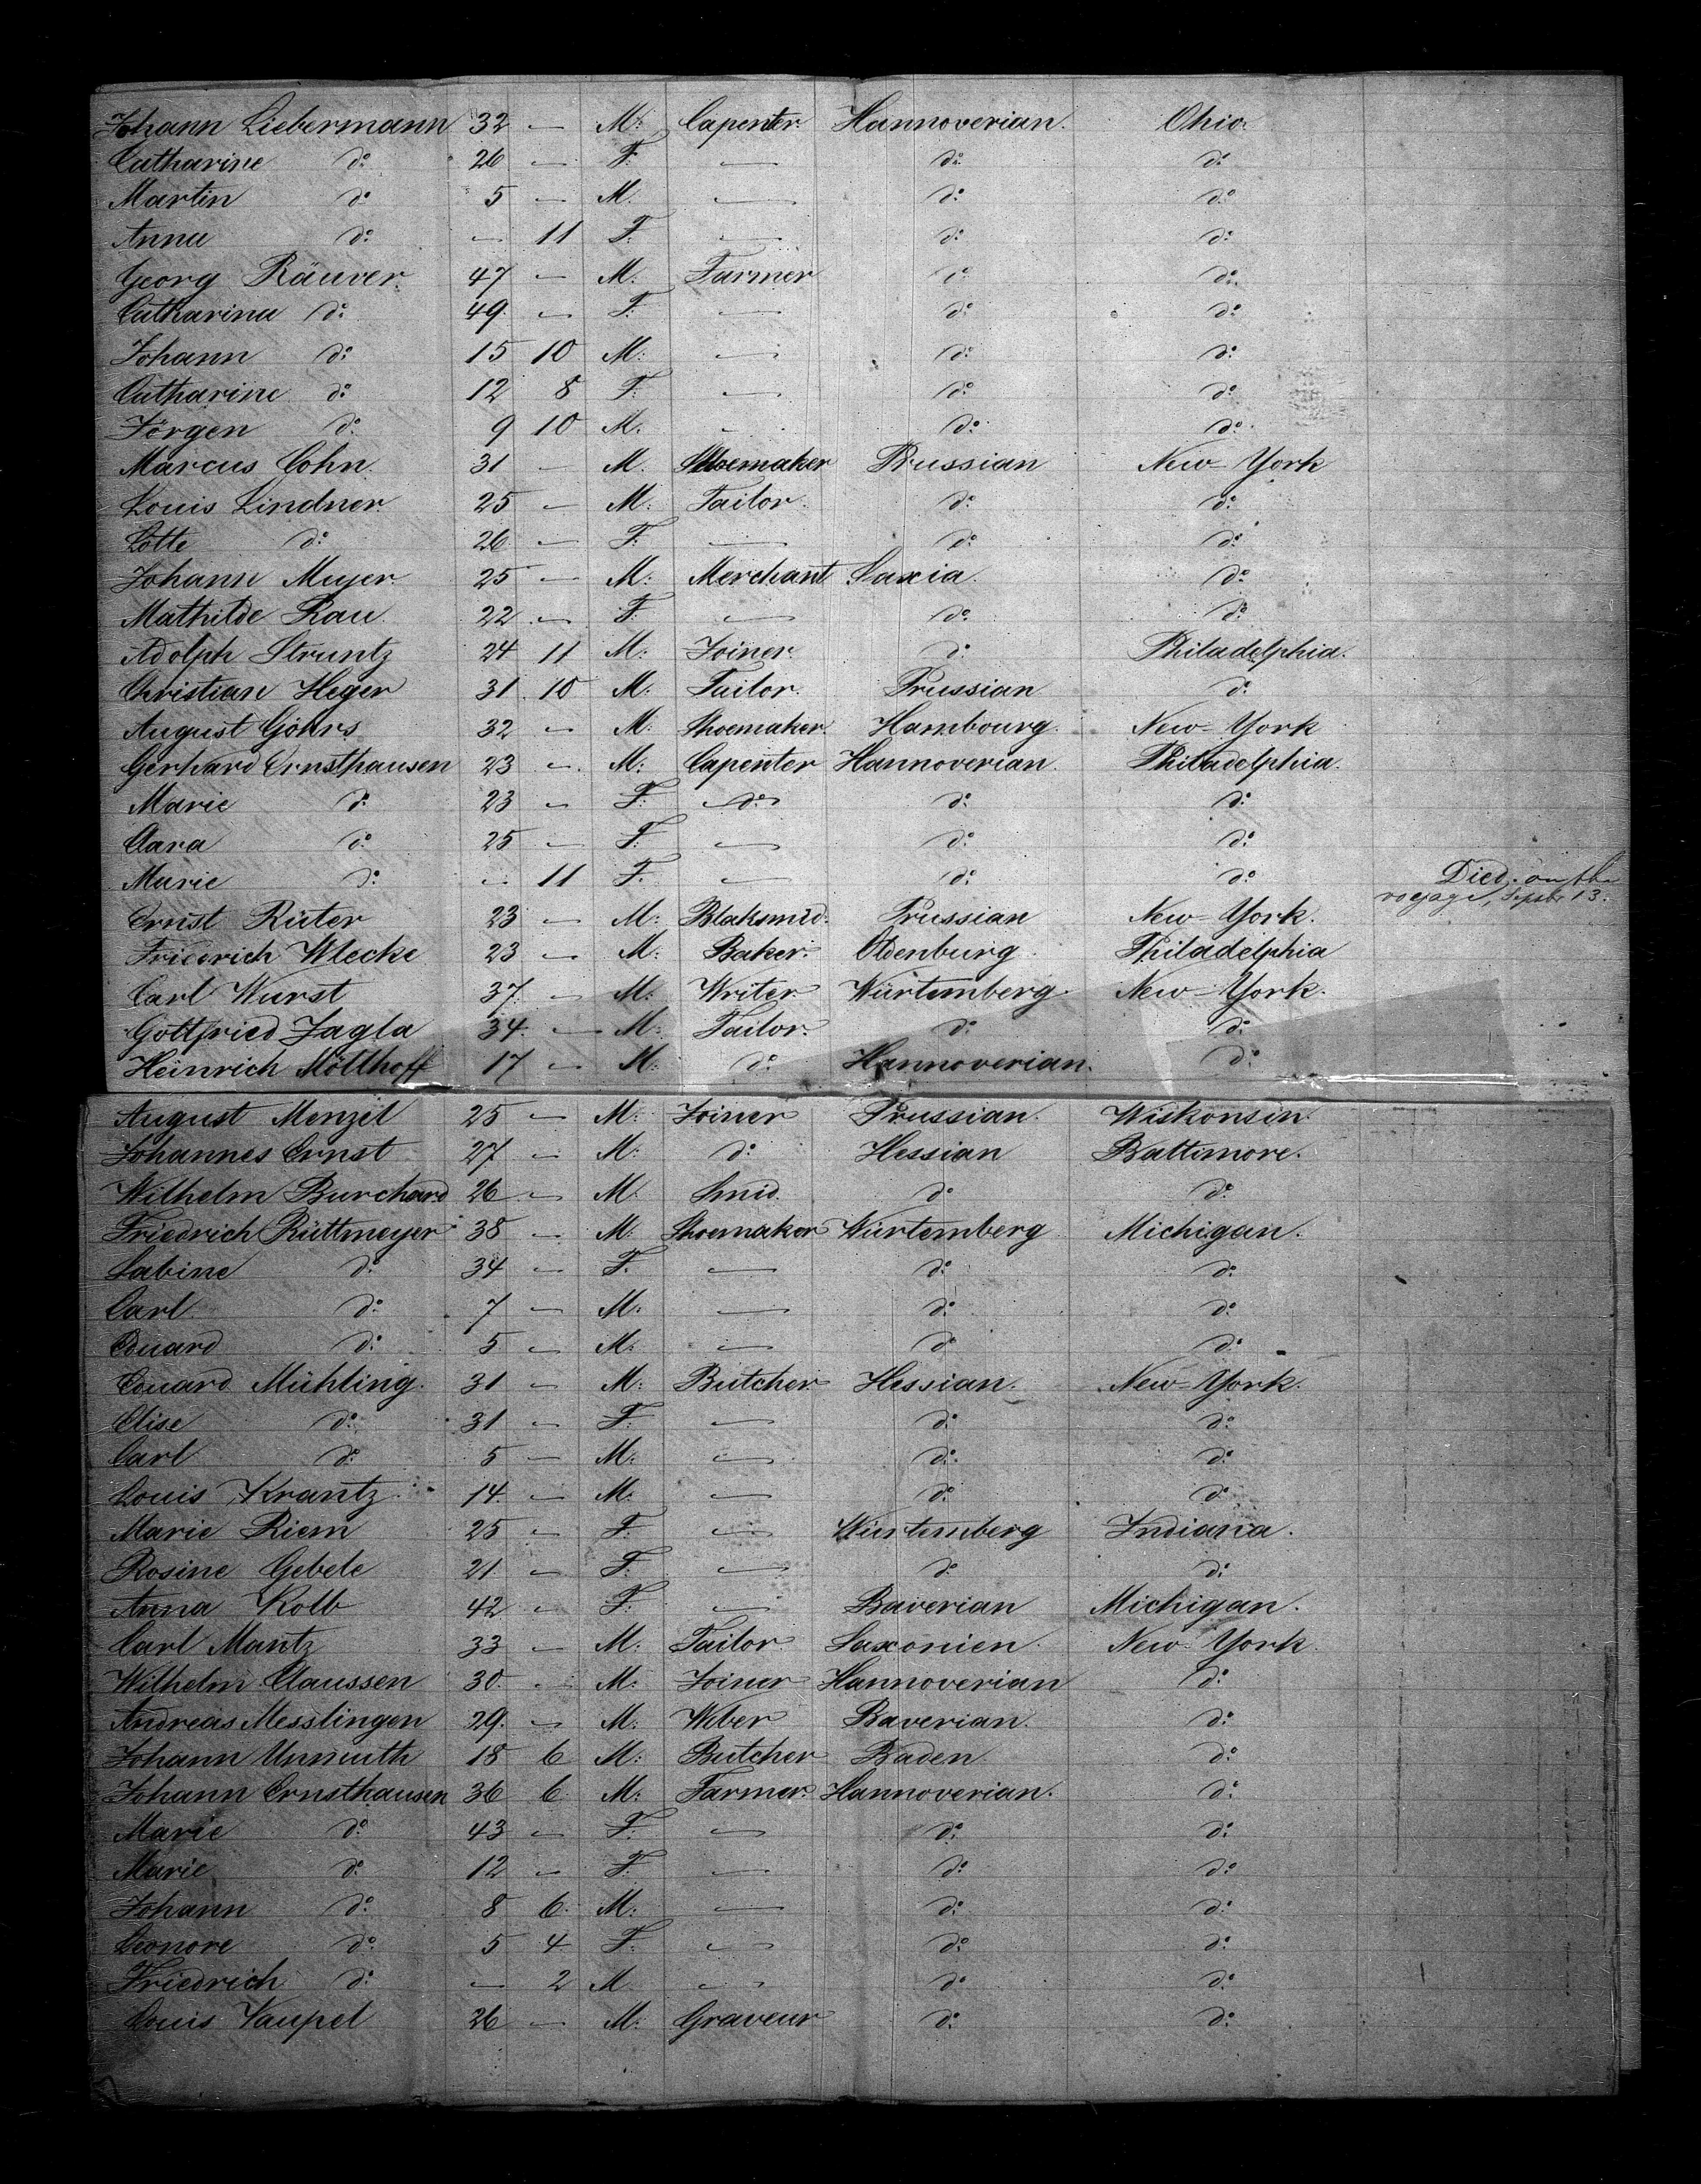 Johann Liebermann 32 — M: Capenter Hannoverian. Ohio.
Catharine do 26 — F. — do do
Martin do 5 — M. — do do
Anna do — 11 F. — do do
Georg Räuver. 47 — M. Farmer do do
Catharina do 49. — F. — do do
Johann do 15 10 M: — do do
Catharine do 12 8 F. — do do
Jörgen do 9 10 M. — do do
Marcus Cohn. 31 — M. Shoemaker Prussian New-York
Louis Lindner. 25 — M: Tailor. do do
Lotte do 26 — F. — do do
Johann Meyer. 25 — M: Merchant Saxia. do
Mathilde Rau. 22 — F. — do do
Adolph Struntz 24 11 M: Joiner. do Philadelphia.
Christian Heger 31. 10 M: Tailor. Prussian do
August Göhrs 32 — M: Shoemaker. Hambourg. New-York
Gerhard Ernsthausen 23 — M: Capenter Hannoverian. Philadelphia.
Marie do 23 — F. do do do
Clara do 25 — F. — do do
Marie do — 11 F. — do do Died on the
voyage, Septbr 13.
Ernst Rüter 23 — M: Blaksmid. Prussian New-York.
Friedrich Wlecke 23 — M: Baker. Oldenburg. Philadelphia
Carl Wurst 37. — M: Writer. Würtemberg. New-York.
Gottfried Jagla 34. — M: Tailor. do do
Heinrich Möllhoff 17 — M: do Hannoverian. do
August Menzel 25 — M: Joiner Prussian. Wiskonsin.
Johannes Ernst 27 — M: do Hessian Baltimore.
Wilhelm Burchard 26 — M. Smid. do do
Friedrich Rüttmeyer 38 — M: Shoemaker Würtemberg Michigan.
Sabine do 34 — F. — do do
Carl do 7 — M: — do do
Eduard do 5 — M: — do do
Eduard Mühling. 31 — M: Butcher. Hessian. New-York.
Elise do 31 — F. — do do
Carl do 5 — M: — do do
Louis Krantz. 14. — M: — do do
Marie Riem 25 — F. — Würtemberg Indiana.
Rosine Gebele 21 — F. — do do
Anna Kolb 42 — F. — Baverian Michigan.
Carl Mantz 33 — M: Tailor. Saxonien. New-York.
Wilhelm Claussen 30. — M: Joiner Hannoverian do
Andreas Messlingen 29. — M: Weber Baverian. do
Johann Unmuth 18 6 M: Butcher Baden. do
Johann Ernsthausen 36 6 M: Farmer. Hannoverian. do
Marie do 43 — F. — do do
Marie do 12 — F. — do do
Johann do 8 6. M: — do do
Leonore do 5 4 F. — do do
Friedrich do — 2 M. — do do
Louis Vaupel 26 — M: Graveur do do